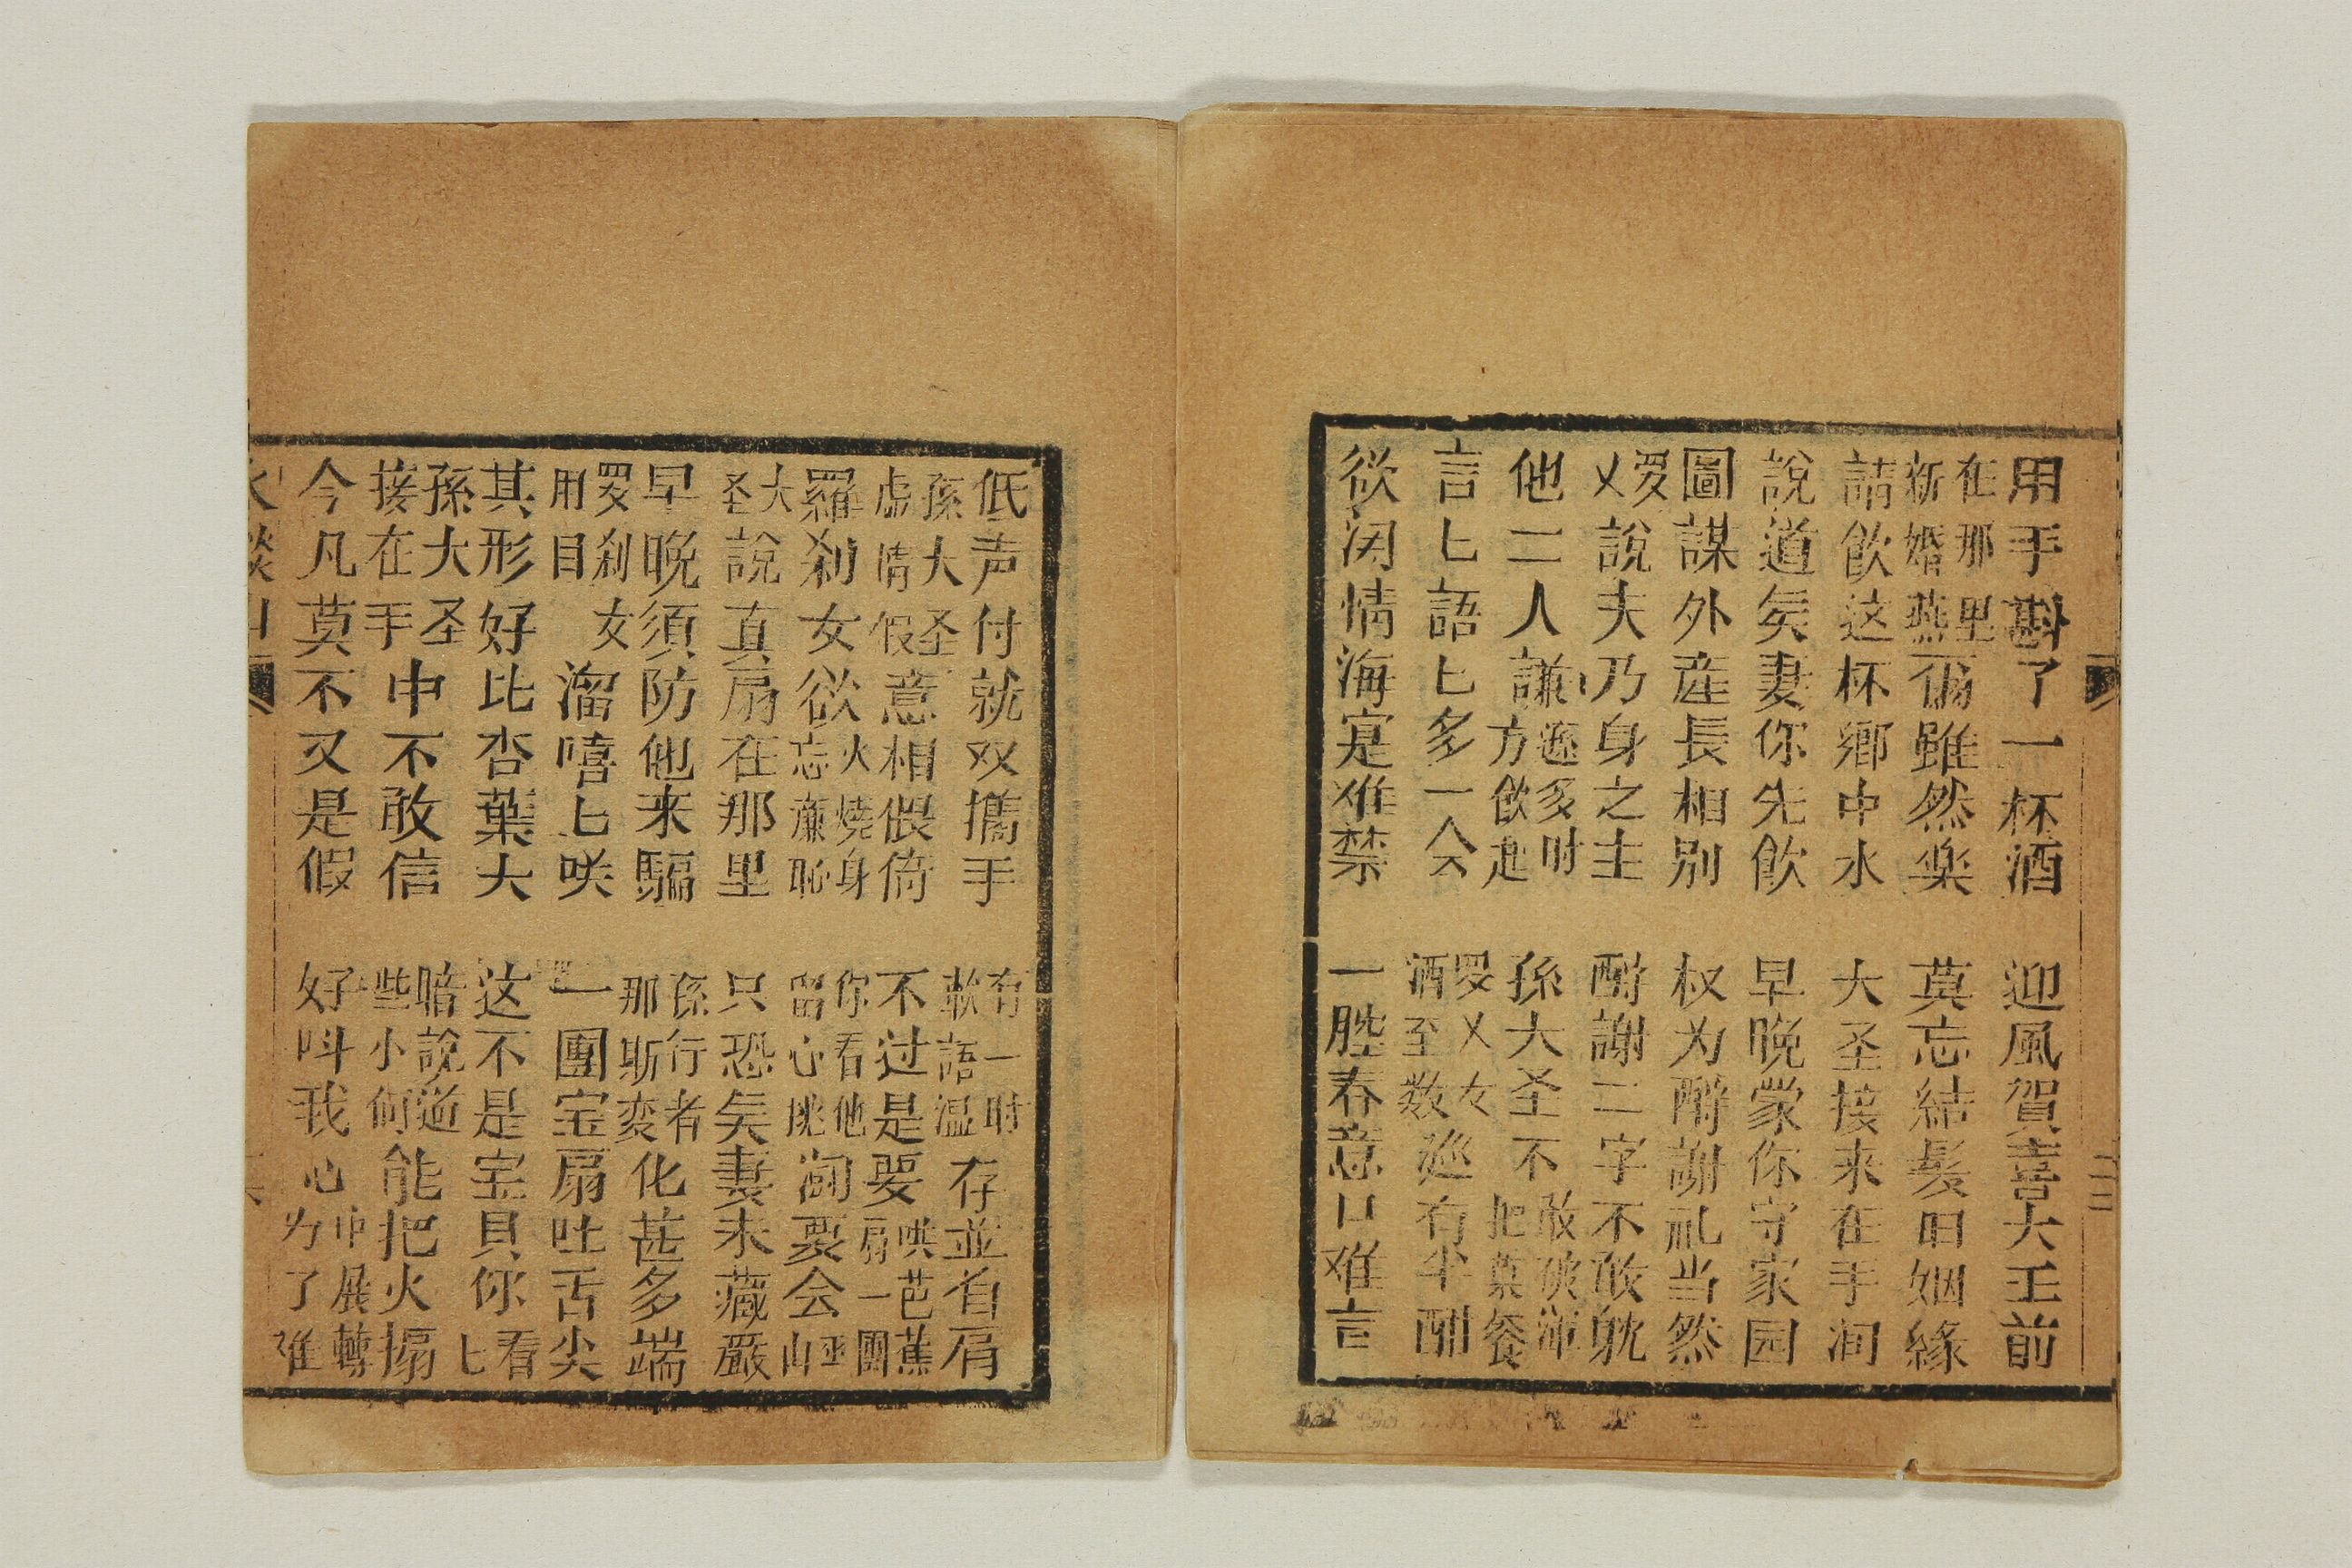 用手斟了一杯酒 迎風賀喜大王前
在那里新婚燕尔雖然楽 莫忘結髮旧姻緣
請飲这杯鄉中水 大圣接来在手间
說道矣妻你先飲 早晚蒙你守家园
圖謀外産長相别 权为酧謝礼当然
罗乂說夫乃身之主 酧謝二字不敢躭
他二人謙遜多时方飲起 孫大圣不敢破把葷餐
言匕語匕多一会 罗乂女酒至数巡有半酣
欲闭情海寔难禁 一腔春意口难言
低声付就双攜手 有一时軟語温存並肖肩
孫大圣虚情假意相偎倚 不过是要哄芭蕉扇一團
羅刹女欲火燒身忘廉恥 你看他留心挑泃要会巫山
大圣說真扇在那里 只恐矣妻未藏嚴
早晚須防他来騙 孫行者那斯変化甚多端
罗刹女用目溜嘻匕咲 一團宝扇吐舌尖
其形好比杏葉大 这不是宝貝你看匕
孫大圣接在手中不敢信 暗說道些小何能把火搧
今凡莫不又是假 好呌我心中展轉为了难
火燄山